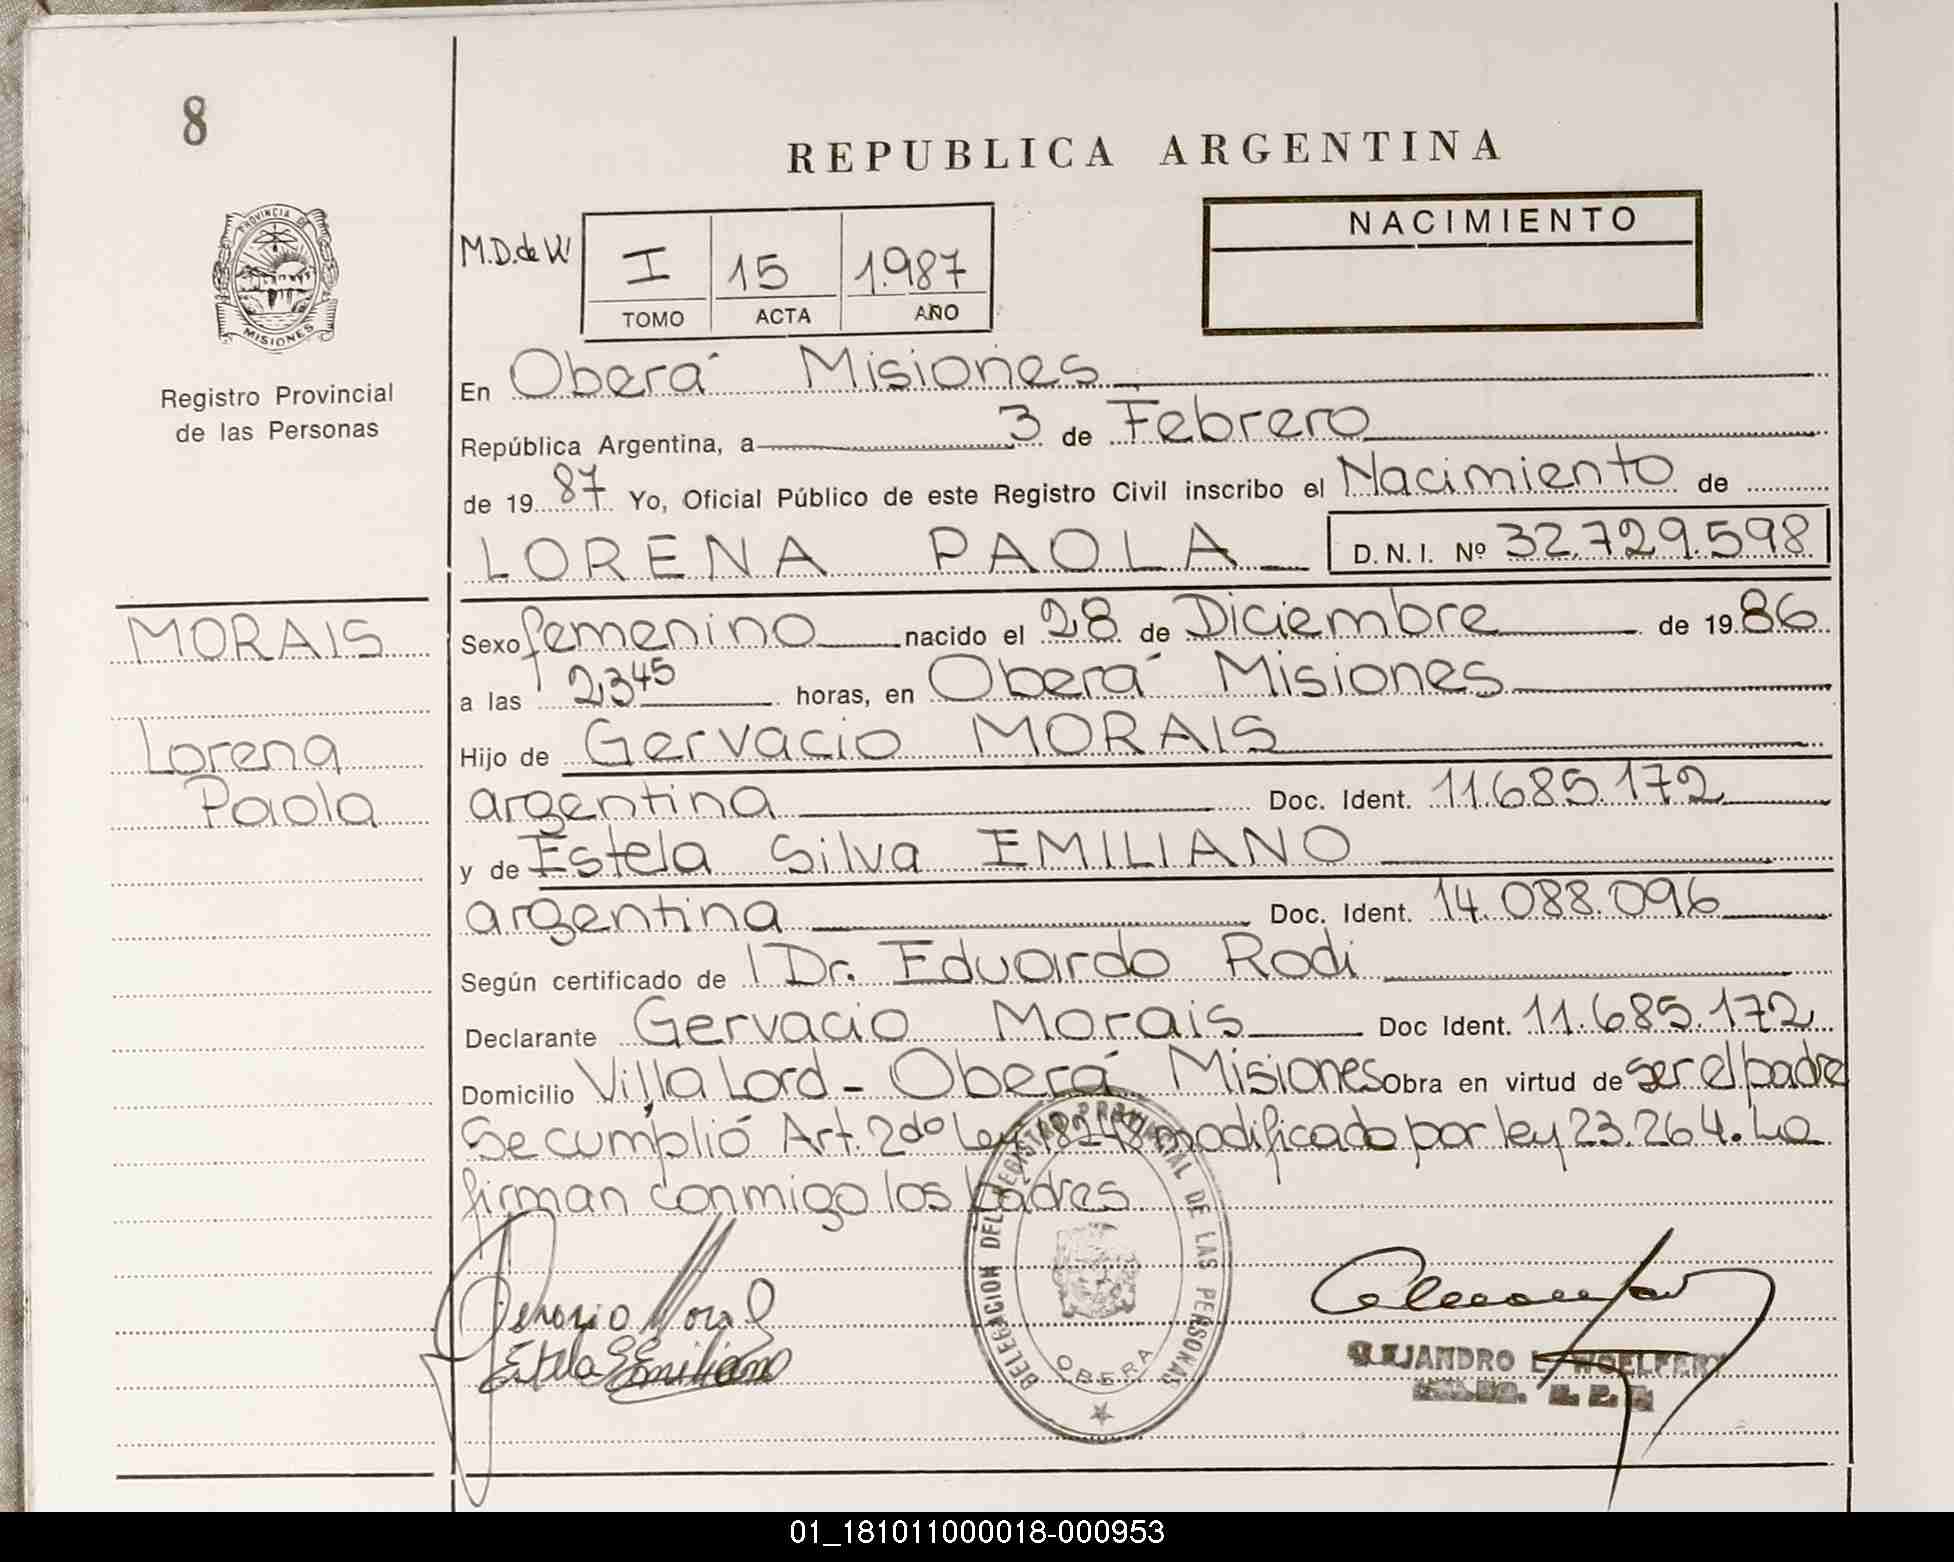 8
REPUBLICA ARGENTINA
PROVINCIA DE
MISIONES
Registro Provincial
de las Personas
M.D.de W
I 15 1.987
TOMO ACTA AÑO
NACIMIENTO
En Oberá Misiones
República Argentina, a 3 de Febrero
de 19 87 Yo, Oficial Público de este Registro Civil inscribo el Nacimiento de
LORENA PAOLA D.N.I. Nº 32.729.598
MORAIS
Lorena
Paola
Sexo femenino nacido el 28 de Diciembre de 19 86
a las 2,345 horas, en Oberá Misiones
Hijo de Gervacio MORAIS
argentina Doc. Ident. 11.685.172
y de Estela Silva EMILIANO
argentina Doc. Ident. 14.088.096
Según certificado de Dr. Eduardo Rodi
Declarante Gervacio Morais Doc Ident. 11.685.172
Domicilio Villa Lord - Oberá Misiones Obra en virtud de ser el padre
Se cumplió Art. 2do Ley 18248 modificado por ley 23.264. Lo
firman conmigo los padres
DELEGACION DEL REGISTRO PROVINCIAL DE LAS PERSONAS
OBERA
Estela S Emiliano
ALEJANDRO L.
01_181011000018-000953